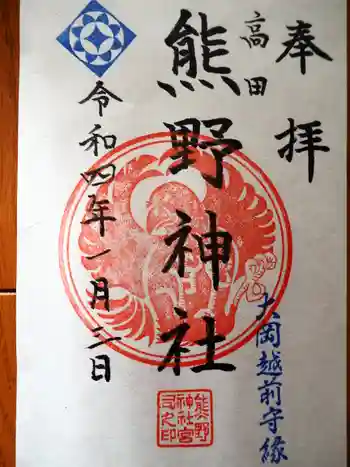 奉拝
高田
熊野神社
令和四年一月三日
大岡越前守縁
熊野
神社宮
司之印